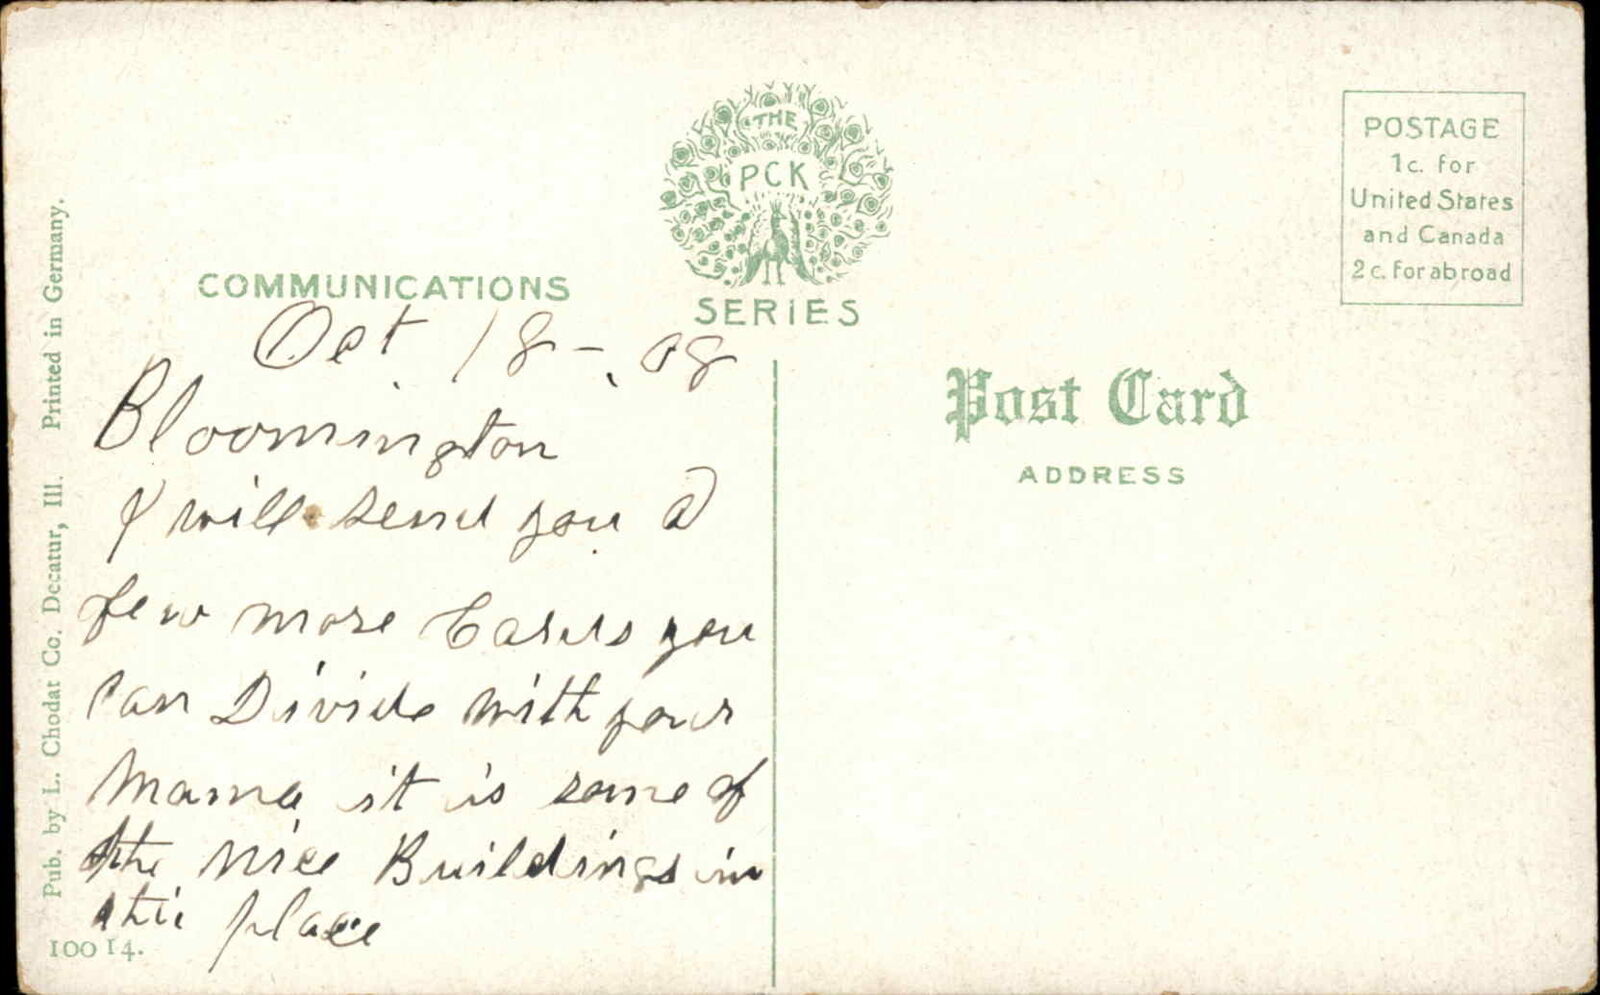 THE
PCK
SERIES
POSTAGE
1c. for
United States
and Canada
2c. for abroad
COMMUNICATIONS
Post Card
ADDRESS
Oct 18-.08
Bloomington
I will send you a
few more Cards you
can Divide with your
Mama it is some of
the nice Buildings in
this place
Pub. by L. Chodat Co. Decatur, Ill. Printed in Germany.
10014.